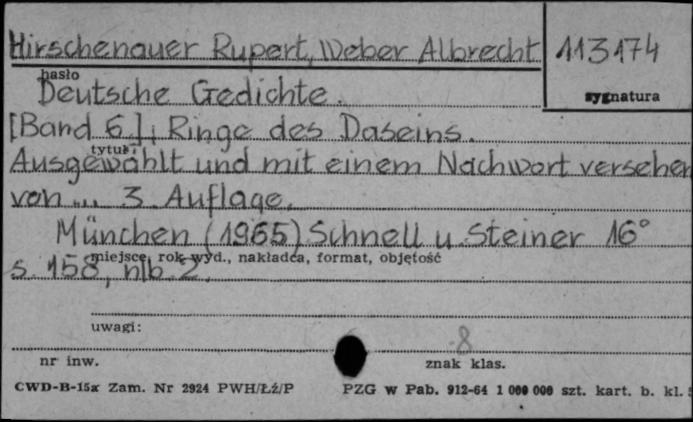 Hirschenauer Rupert, Weber Albrecht 113174
hasło
sygnatura
Deutsche Gedichte.
[Band 6]; Ringe des Daseins.
tytuł:
Ausgewählt und mit einem Nachwort versehen
von ... 3. Auflage.
München (1965) Schnell u. Steiner 16°
miejsce, rok wyd., nakładca, format, objętość
s. 158, nlb 2.
uwagi:
8
nr inw. znak klas.
CWD-B-15a Zam. Nr 2924 PWH/Łź/P PZG w Pab. 912-64 1 000 000 szt. kart. b. kl.